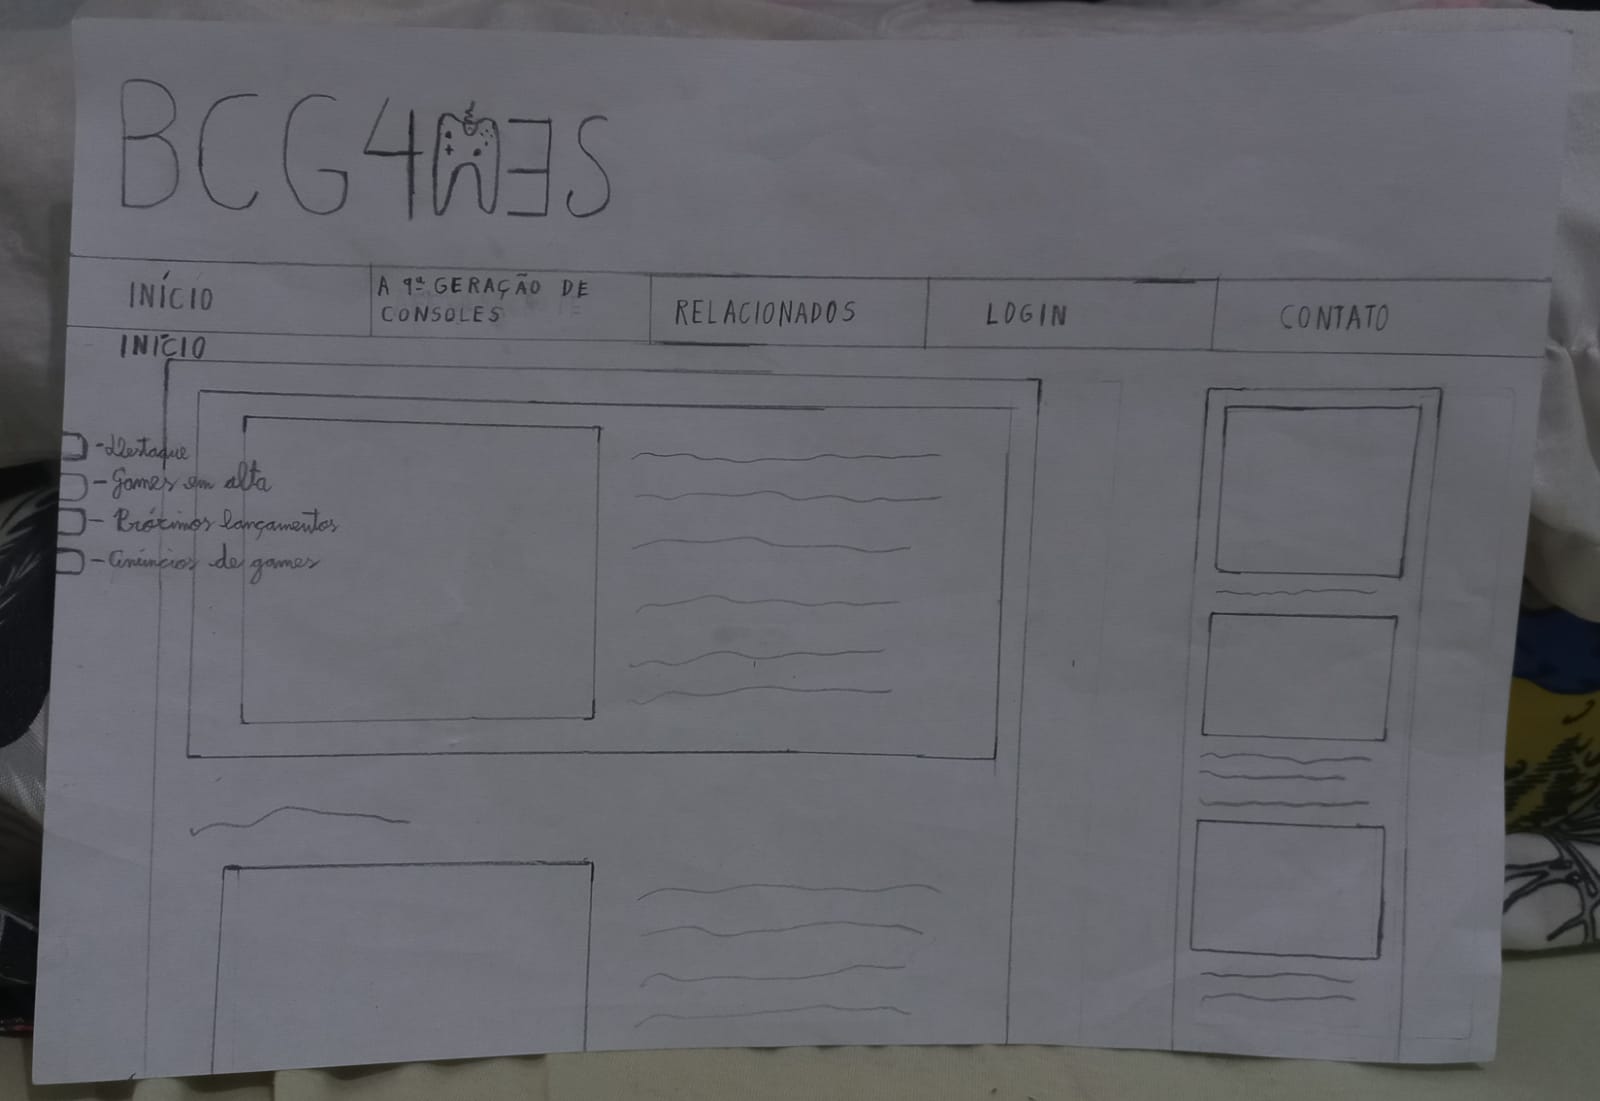 BCG4MES
INÍCIO
A 9ª GERAÇÃO DE
CONSOLES
RELACIONADOS
LOGIN
CONTATO
INÍCIO
- Destaque
- Games em alta
- Próximos lançamentos
- Anúncios de games